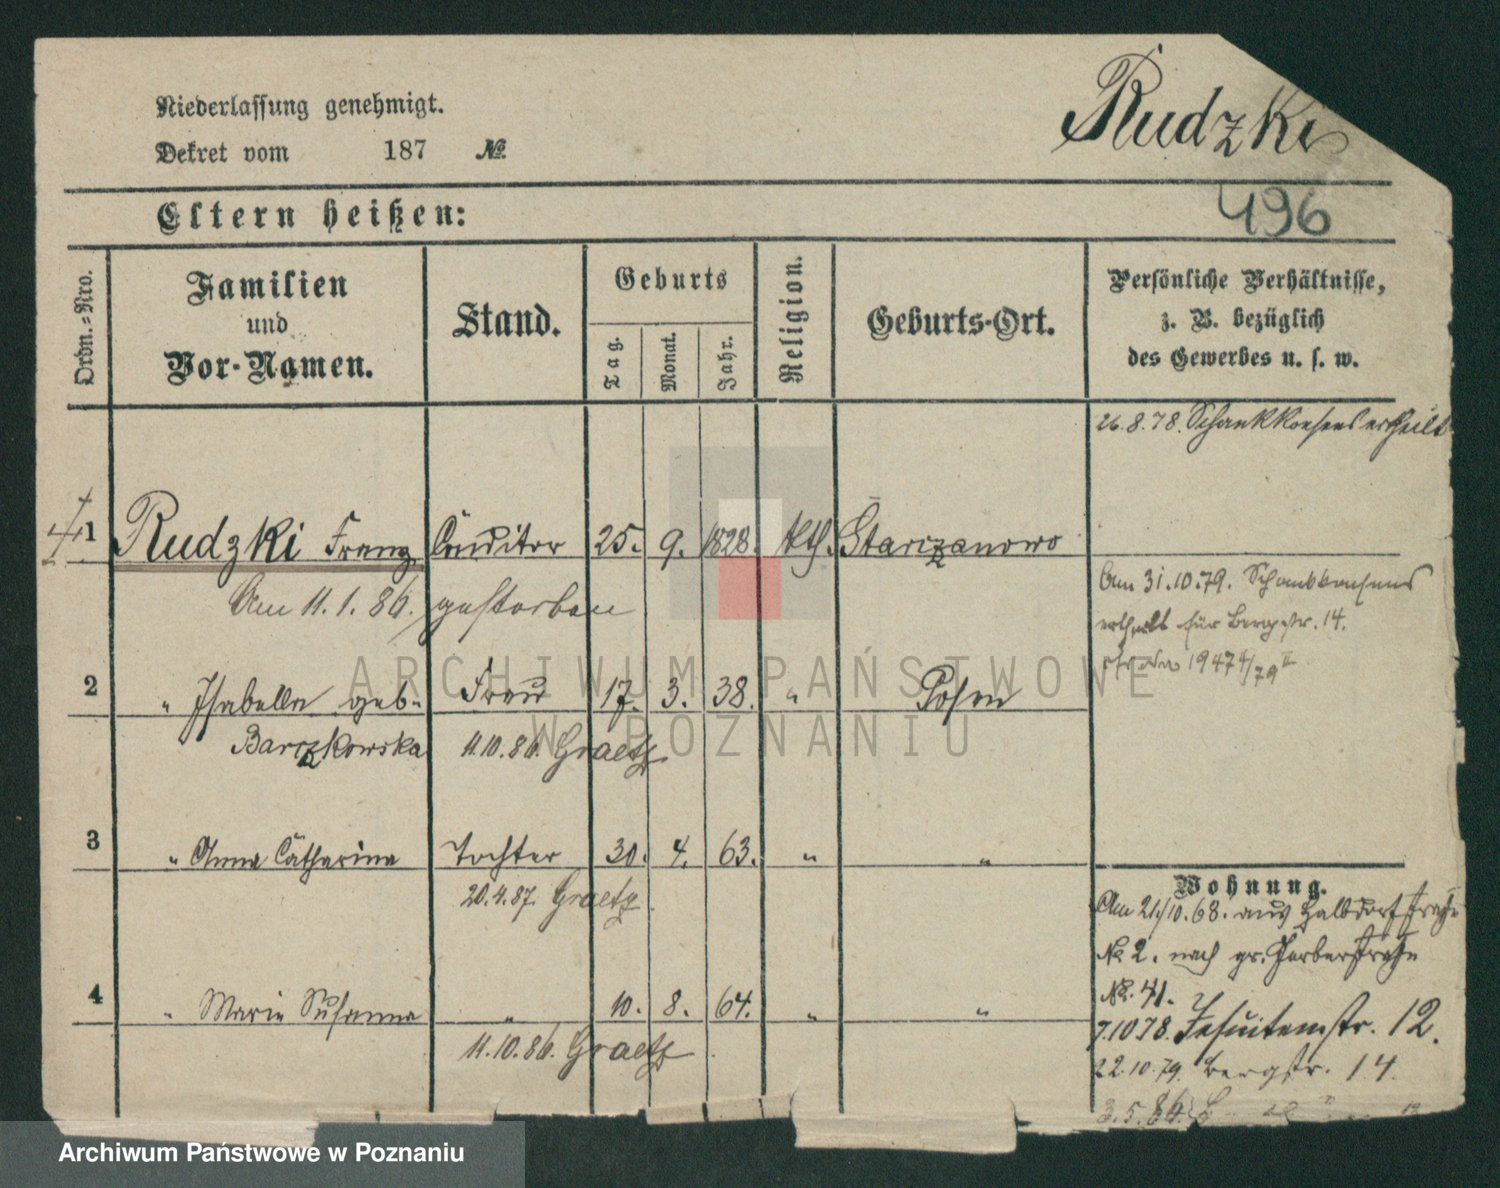 Niederlassung genehmigt.
Dekret vom 187 №
Rudzki
496
Eltern heißen:
Ordn.-Nro.
Familien und Vor-Namen.
Stand.
Geburts
Tag.
Monat.
Jahr.
Religion.
Geburts-Ort.
Persönliche Verhältnisse,
z. B. bezüglich
des Gewerbes u. s. w.
26.8.78. Schankkonsens ertheilt
1 Rudzki Franz Conditor 25. 9. 1828. kth. Starczanowo
Am 11.1.86. gestorben
Am 31.10.79. Schankkonsens
ertheilt für Bergstr. 14.
1947 4/79 II
2 " Isabella geb. Frau 17. 3. 38. " Posen
Barczkowska 11.10.86. Graetz
3 " Anna Catharina Tochter 30. 4. 63. " "
20.4.87. Graetz
4 " Marie Susanna " 10. 8. 64. " "
11.10.86. Graetz
Wohnung.
Am 21/10.68. aus Halbdorfstraße
№ 2. nach gr. Gerberstraße
№. 41.
7.10.78. Jesuitenstr. 12.
22.10.79. Bergstr. 14.
3.5.86.
ARCHIWUM PAŃSTWOWE
W POZNANIU
Archiwum Państwowe w Poznaniu